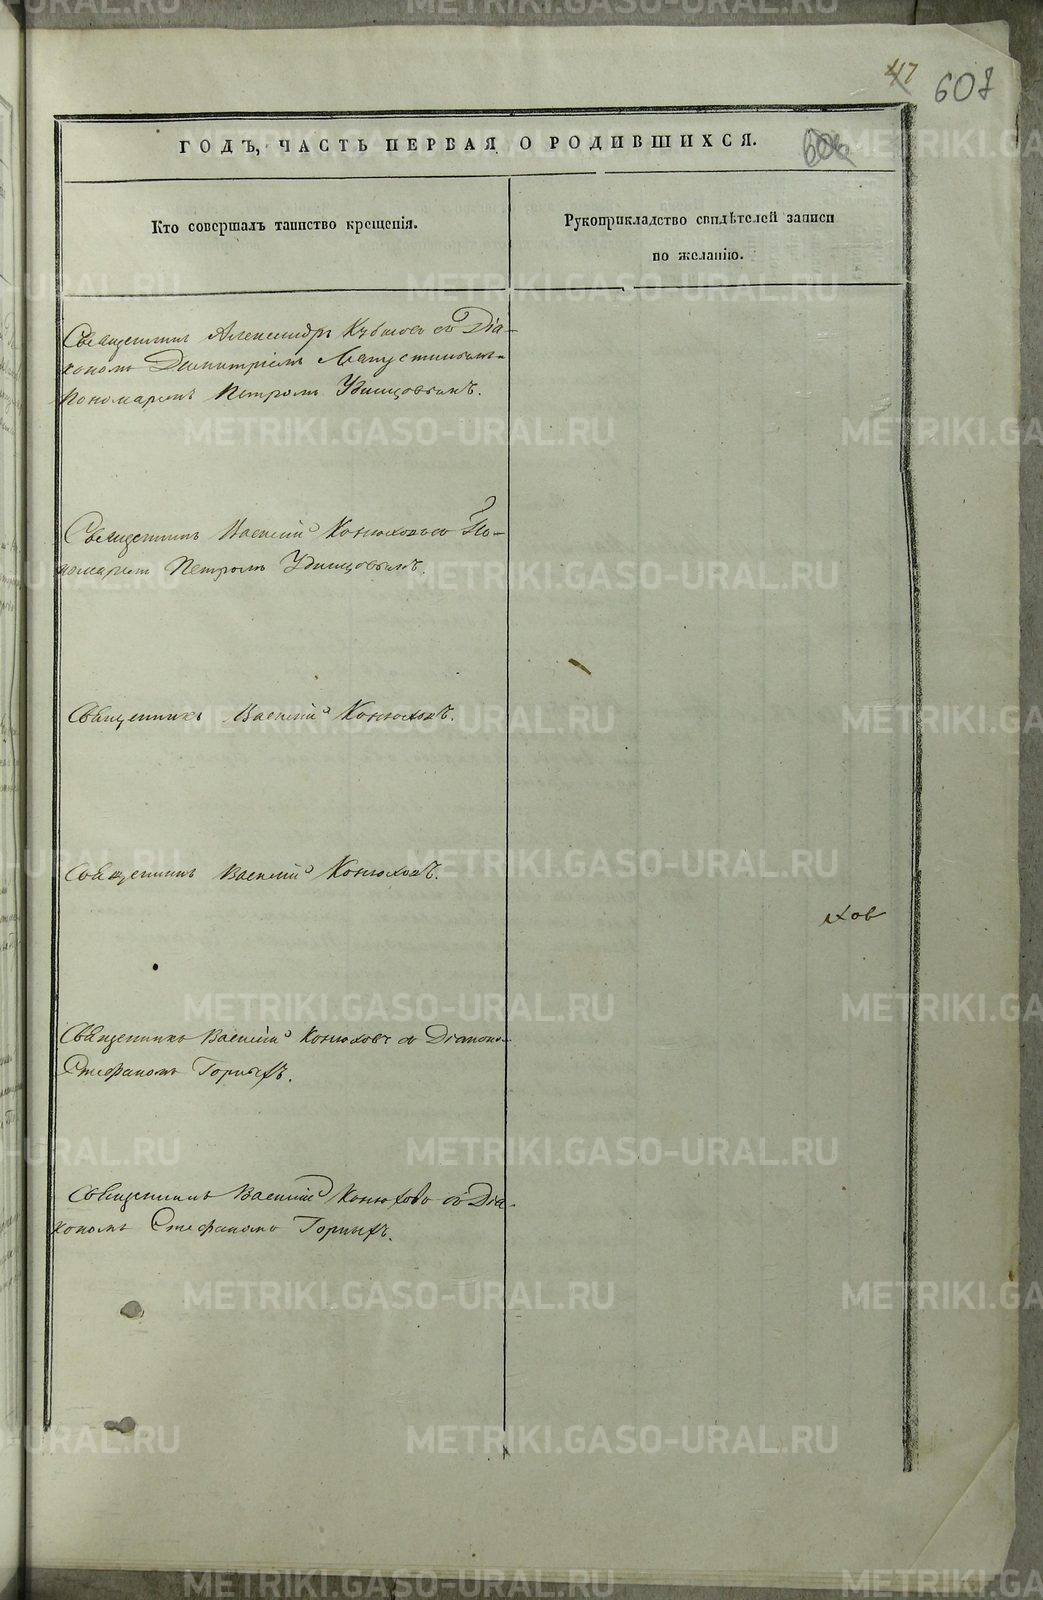 47 607
ГОДЪ, ЧАСТЬ ПЕРВАЯ О РОДИВШИХСЯ.
Кто совершалъ таинство крещенія.
Рукоприкладство свидѣтелей записи
по желанію.
Священникъ Александръ со Діа-
кономъ Димитріемъ
Пономаремъ Петромъ Удинцовымъ.
Священникъ Василій Конюховъ со По-
номаремъ Петромъ Удинцовымъ.
Священникъ Василій Конюховъ.
Священникъ Василій Конюховъ.
хов
Священникъ Василій Конюховъ со Діакономъ
Стефаномъ Горныхъ.
Священникъ Василій Конюховъ со Діа-
кономъ Стефаномъ Горныхъ.
METRIKI.GASO-URAL.RU